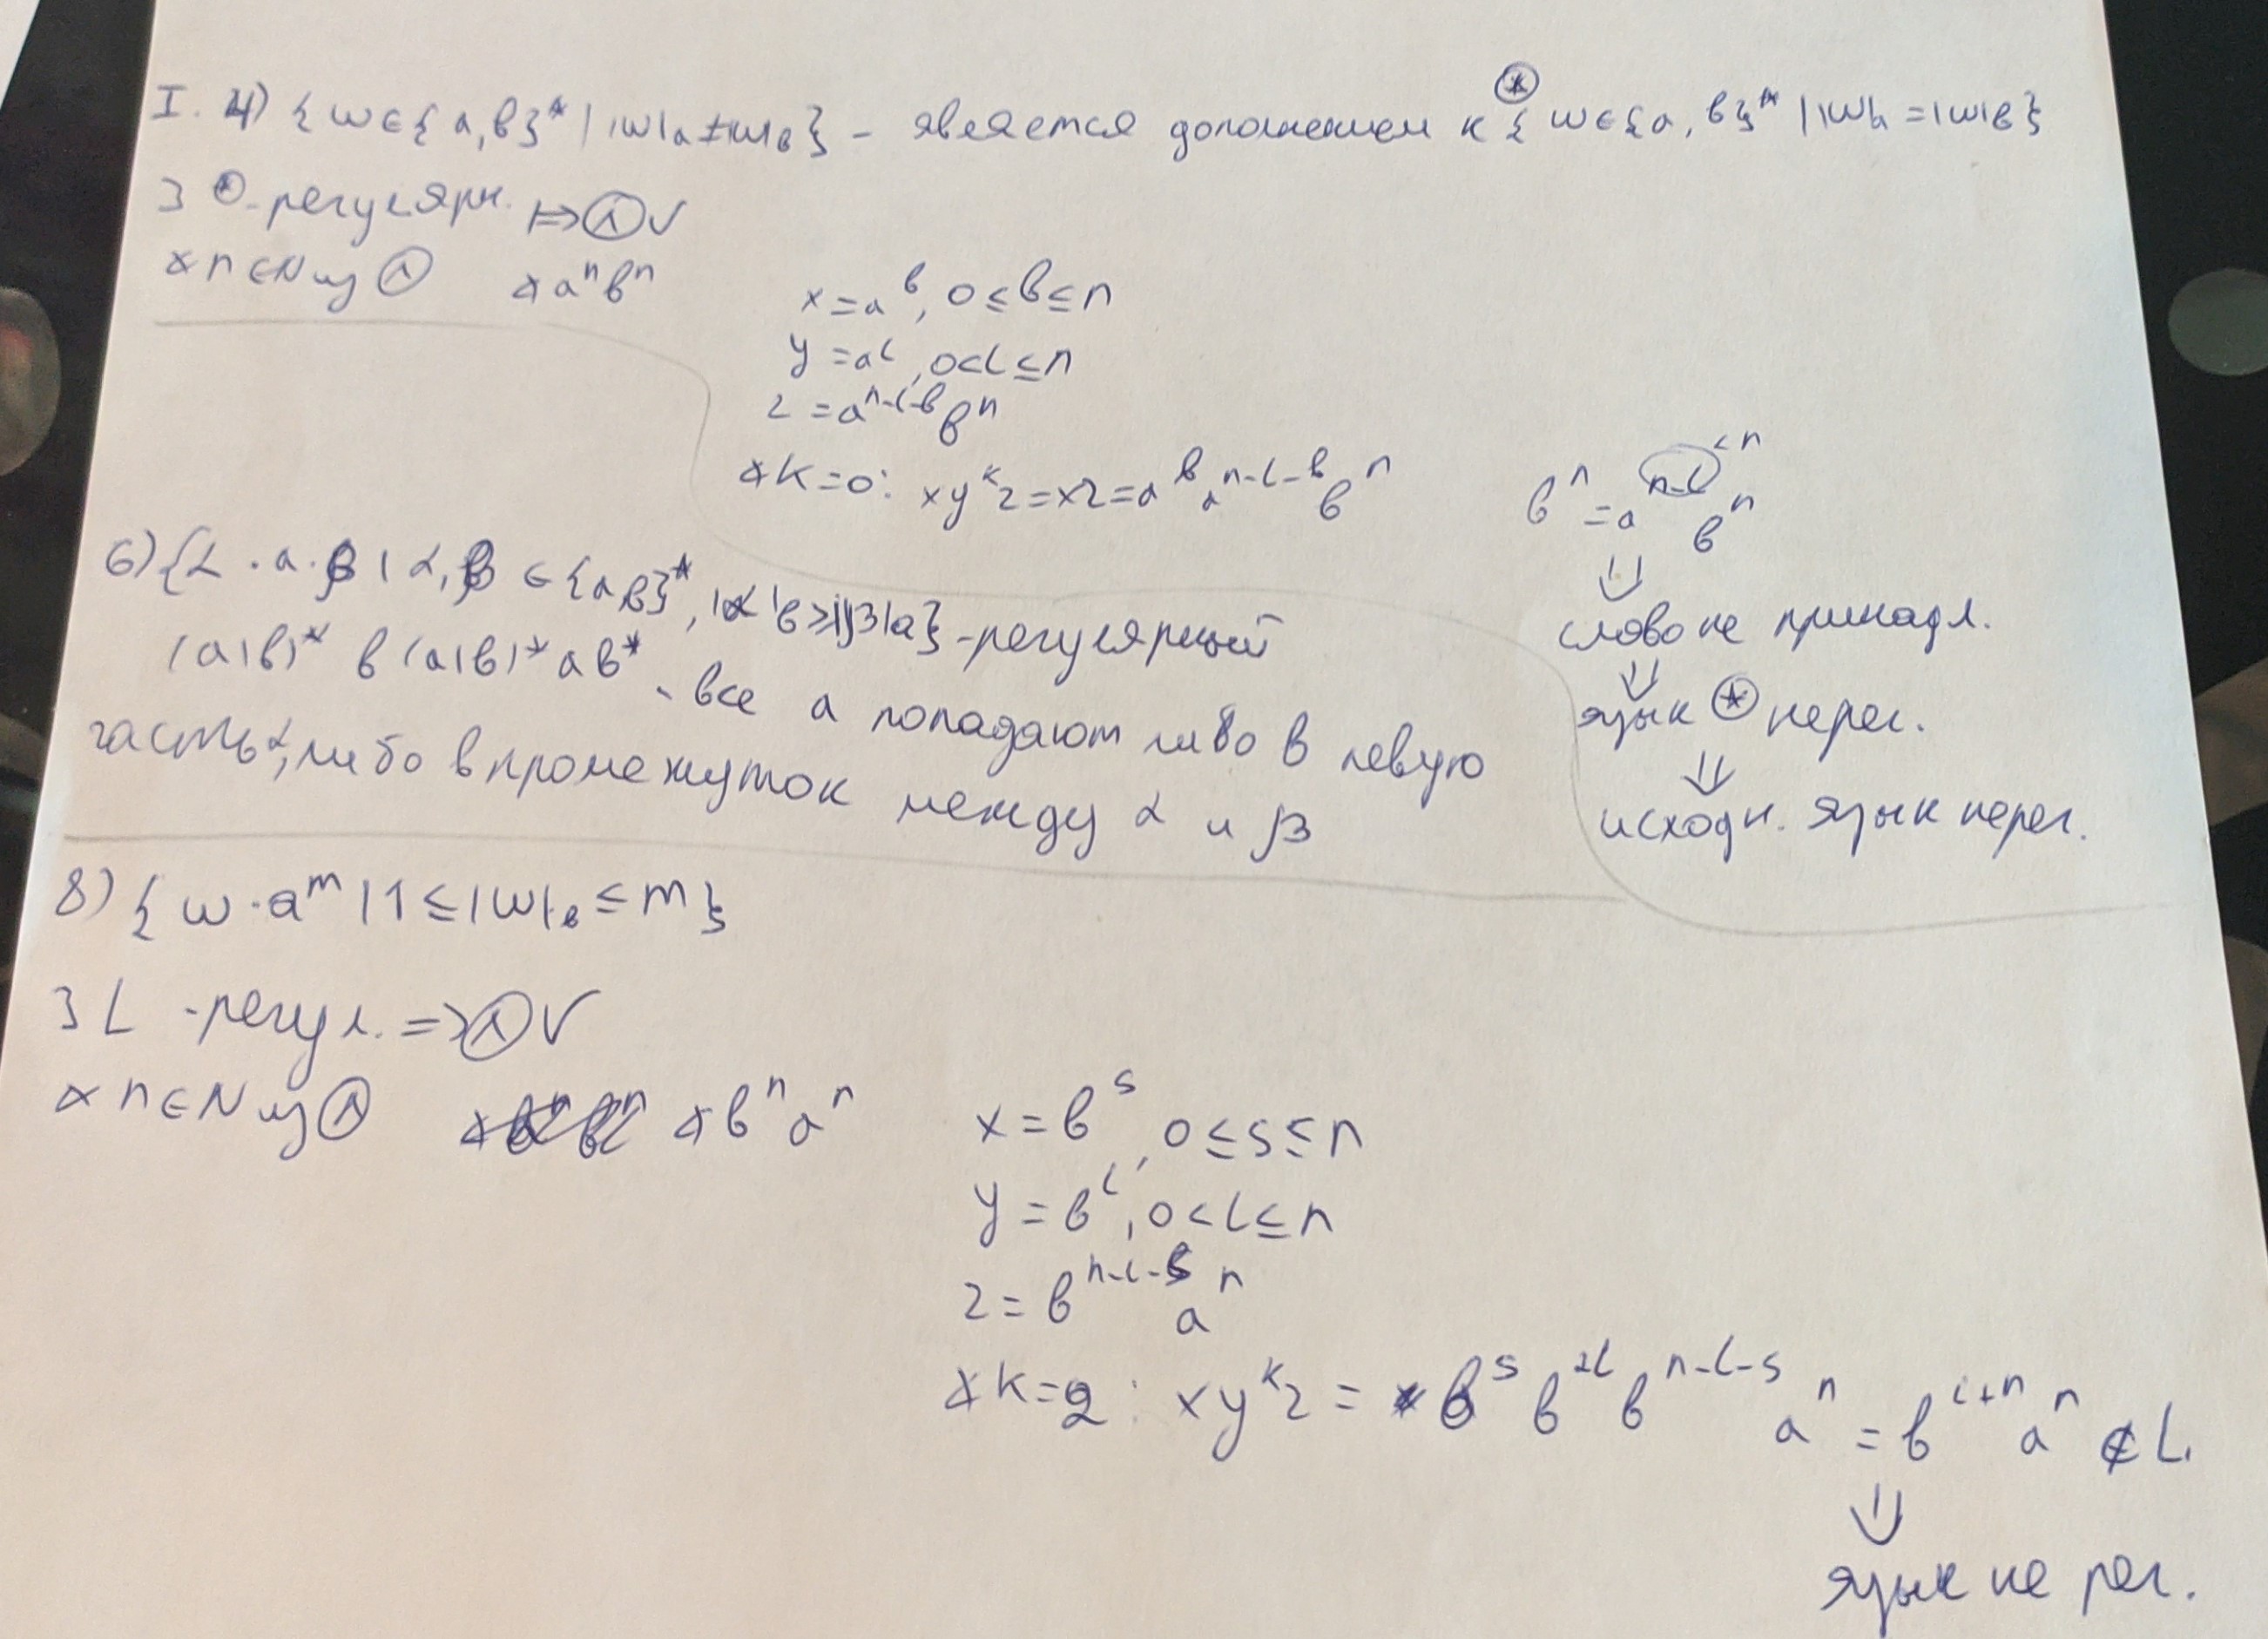 I. 4) {ω∈{a,b}* | |ω|a≠|ω|b} - является дополнением к ⊛ {ω∈{a,b}* | |ω|a=|ω|b}
] ⊛-регулярн. ⇒ Ⓛ ∨
∢ n∈N из Ⓛ ∢ aⁿbⁿ
x=a^b, 0≤b≤n
y=a^l, 0<l≤n
z=a^{n-l-b}bⁿ
∢k=0: xy^kz=xz=a^b a^{n-l-b} bⁿ
bⁿ=a^{n-l} bⁿ
<n
⇓
слово не принадл.
⇓
язык ⊛ нерег.
⇓
исходн. язык нерег.
6) {α·a·β | α,β∈{a,b}*, |α|b≥|β|a} - регулярный
(a|b)* b (a|b)* a b* - все a попадают либо в левую
часть α, либо в промежуток между α и β
8) {ω·a^m | 1≤|ω|b≤m}
] L -регул. ⇒ Ⓛ ∨
∢ n∈N из Ⓛ ∢ bⁿaⁿ
x=b^s, 0≤s≤n
y=b^l, 0<l≤n
z=b^{n-l-s}aⁿ
∢k=2: xy^kz= b^s b^{2l} b^{n-l-s} aⁿ = b^{l+n} aⁿ ∉ L.
⇓
язык не рег.